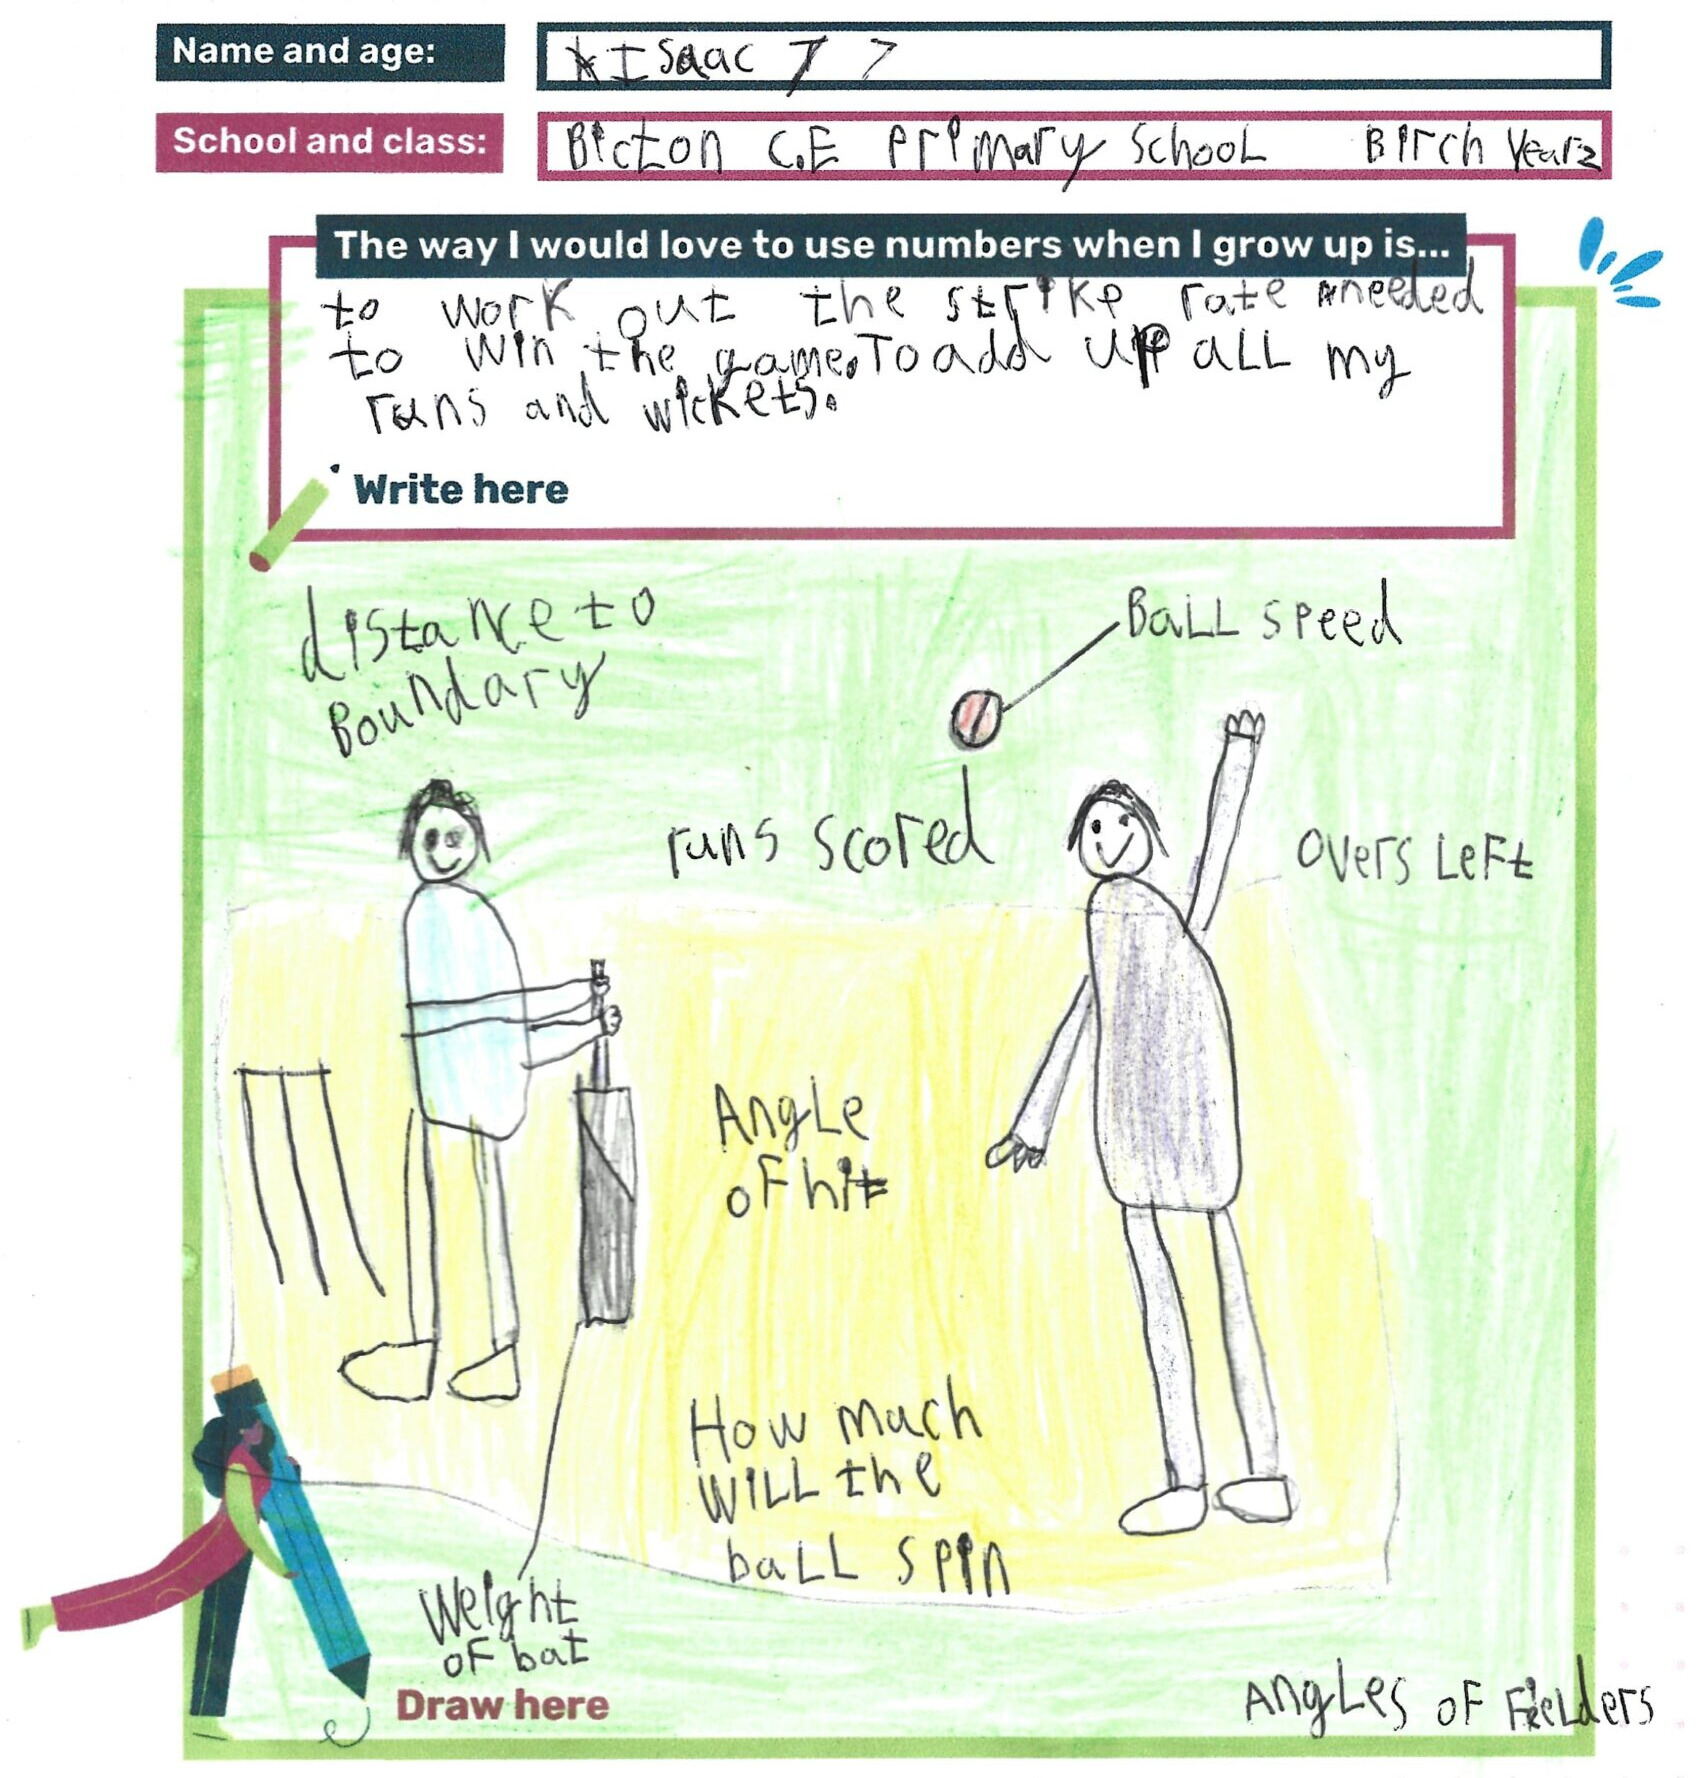 Name and age:
Isaac 7 7
School and class:
Bicton C.E Primary School Birch Year2
The way I would love to use numbers when I grow up is...
to work out the strike rate needed
to win the game. To add up all my
runs and wickets.
Write here
distance to
Boundary
Ball speed
runs scored
overs left
Angle
of hit
How much
will the
ball spin
Weight
of bat
Draw here
Angles of Fielders